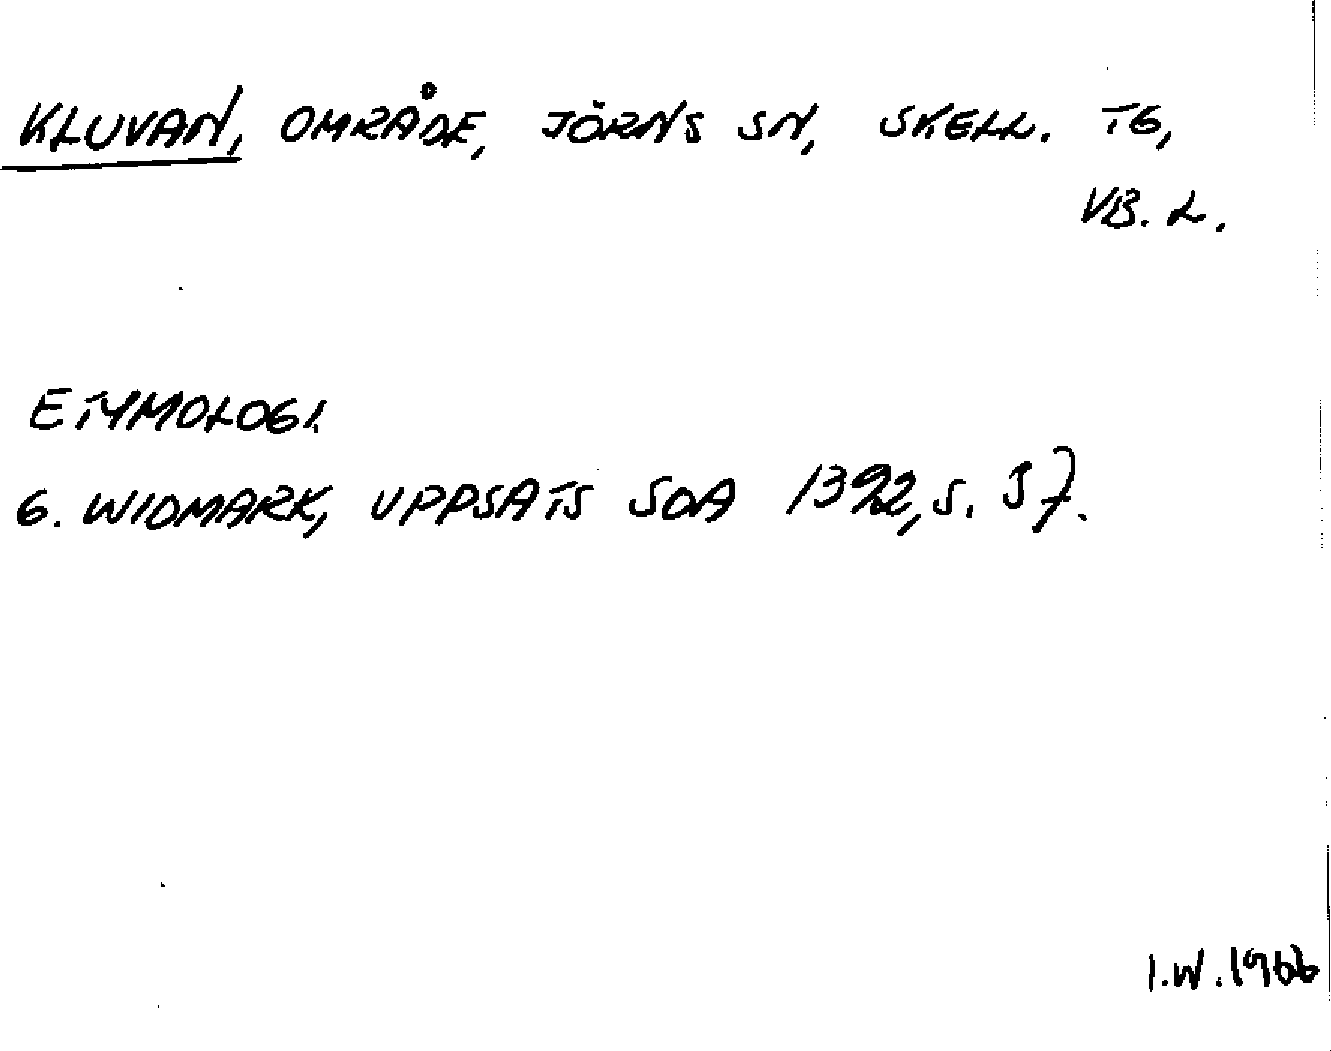 KLUVAN, OMRÅDE, JÖRNS SN, SKELL. TG,
VB. L.
ETYMOLOGI.
G. WIDMARK, UPPSATS SOA 1392, S. 37.
I.W. 1966